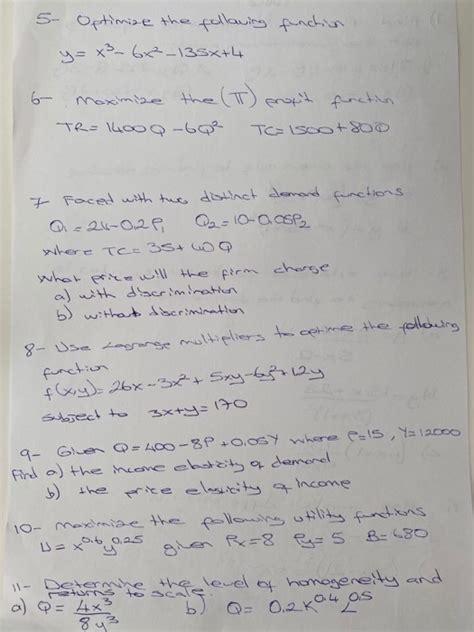 5- Optimize the following function
y = x³ - 6x² - 135x + 4
6- Maximize the (π) profit function
TR = 1400Q - 6Q² TC = 1500 + 80Q
7 Faced with two distinct demand functions
Q₁ = 24 - 0.2P₁ Q₂ = 10 - 0.05P₂
where TC = 35 + 40Q
What price will the firm charge
a) with discrimination
b) without discrimination
8- Use Lagrange multipliers to optime the following
function
f(x,y) = 26x - 3x² + 5xy - 6y² + 12y
subject to 3x + y = 170
9- Given Q = 400 - 8P + 0.05Y where P = 15, Y = 12000
Find a) the income elasticity of demand
b) the price elasticity of Income
10- maximize the following utility functions
U = x^0.6 y^0.25 given Px = 8 Py = 5 B = 680
11- Determine the level of homogeneity and
returns to scale
a) Q = 4x³ / 8y³ b) Q = 0.2K^0.4 L^0.5